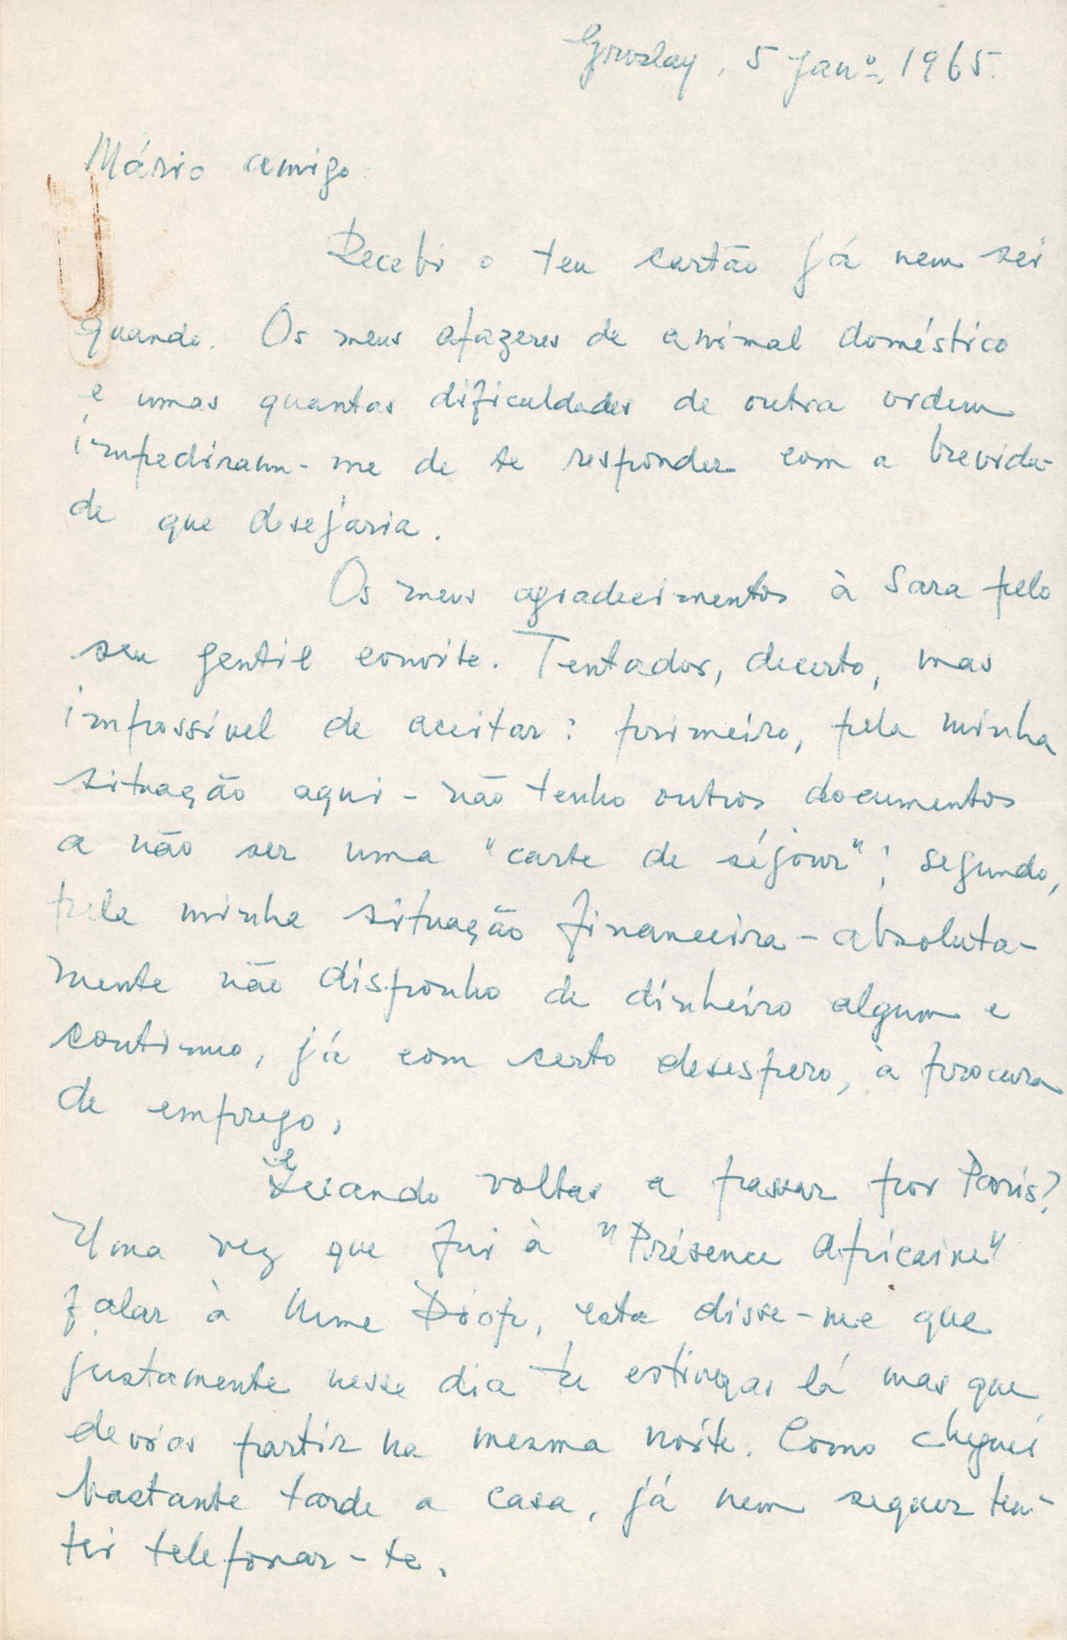 Groslay, 5 Janº. 1965.
Mário amigo
Recebi o teu cartão já nem sei
quando. Os meus afazeres de animal doméstico
e umas quantas dificuldades de outra ordem
impediram-me de te responder com a brevida-
de que desejaria.
Os meus agradecimentos à Sara pelo
seu gentil convite. Tentador, decerto, mas
impossível de aceitar: primeiro, pela minha
situação aqui - não tenho outros documentos
a não ser uma "carte de séjour"; segundo,
pela minha situação financeira - absoluta-
mente não disponho de dinheiro algum e
continuo, já com certo desespero, à procura
de emprego.
Quando voltas a passar por Paris?
Uma vez que fui à "Présence Africaine"
falar à Mme Diop, esta disse-me que
justamente nesse dia tu estiveras lá mas que
devias partir na mesma noite. Como cheguei
bastante tarde a casa, já nem sequer ten-
tei telefonar-te.